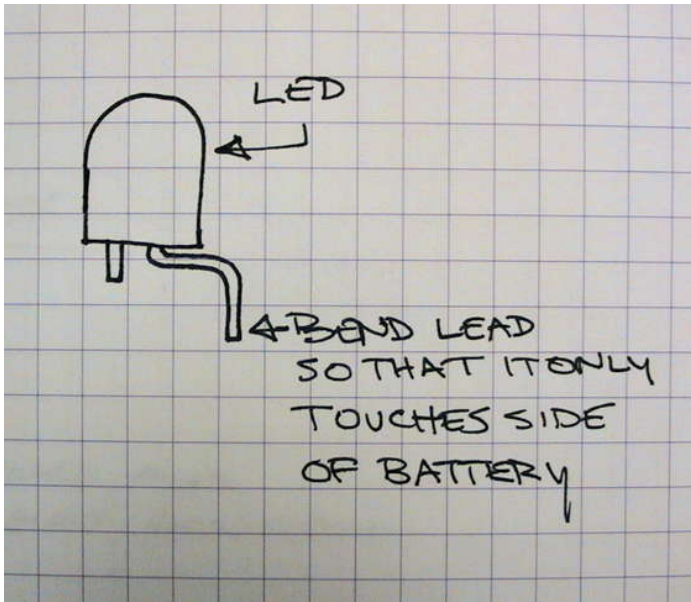 LED
BEND LEAD
SO THAT IT ONLY
TOUCHES SIDE
OF BATTERY